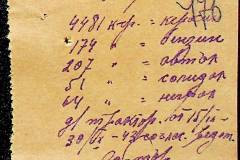 176
4481 кгр. = керосин
174 " = бензин
207 " = автол
51 " = солидол
64 " = нигрол
дл трактор. от 15/IX-
30/IX-43 соглас. ведом.